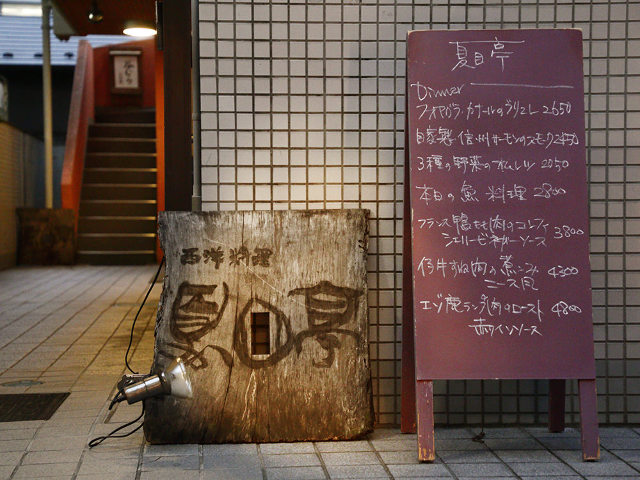 西洋料理
夏目亭
夏目亭
Dinner
フォアグラ・カナールのブリュレ 2650
自家製 信州サーモンのスモーク 2450
3種の野菜のオムレツ 2050
本日の魚料理 2800
フランス鴨もも肉のコンフィ
シェリービネガーソース 3800
仔牛すね肉の煮こみ 4300
ニース風
エゾ鹿ランプ肉のロースト 4800
赤ワインソース